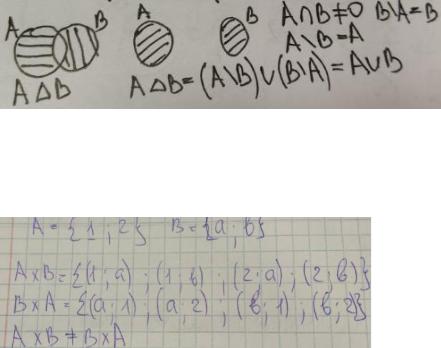 A B A B A∩B≠0 B\A=B
A\B=A
A△B A△B=(A\B)∪(B\A)=A∪B
A={1;2} B={a;b}
A×B={(1;a);(1;b);(2;a);(2;b)}
B×A={(a;1);(a;2);(b;1);(b;2)}
A×B≠B×A